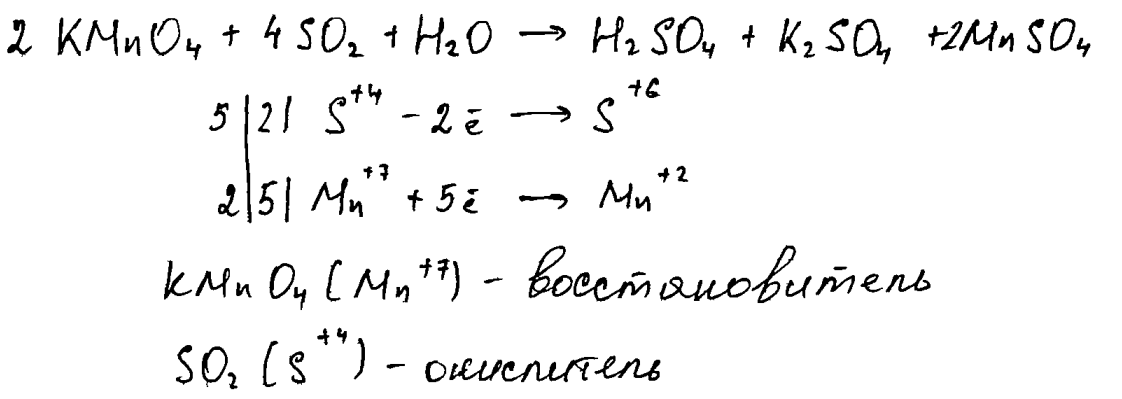 2 KMnO₄ + 4SO₂ + H₂O → H₂SO₄ + K₂SO₄ + 2MnSO₄
5 | 2 | S⁺⁴ - 2ē → S⁺⁶
2 | 5 | Mn⁺⁷ + 5ē → Mn⁺²
KMnO₄ (Mn⁺⁷) - восстановитель
SO₂ (S⁺⁴) - окислитель